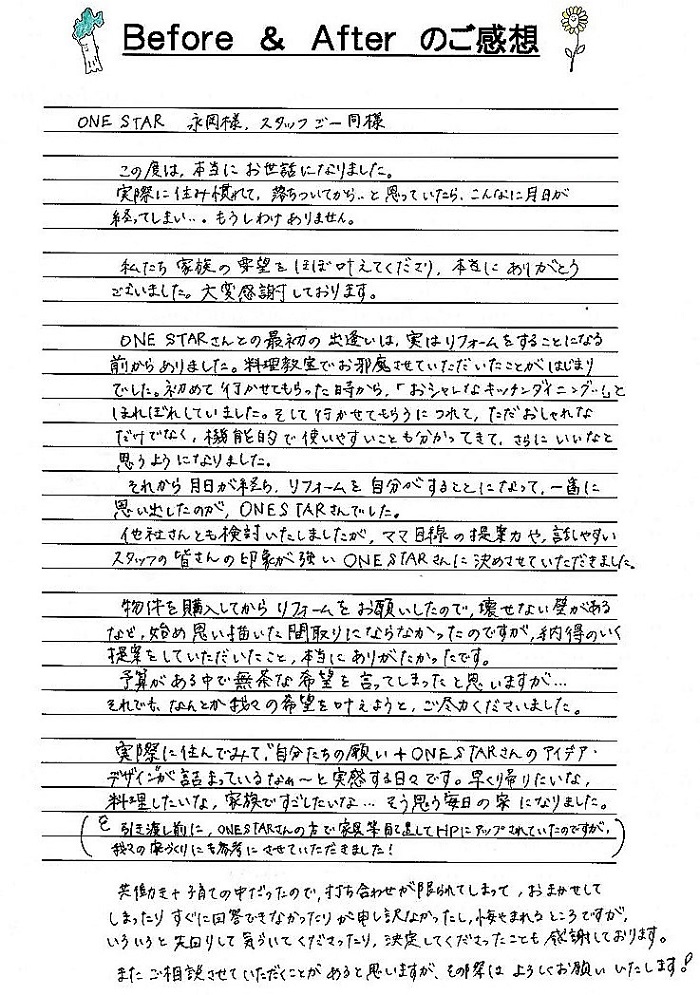 Before & After のご感想
ONE STAR 永岡様、スタッフご一同様
この度は、本当にお世話になりました。
実際に住み慣れて、落ちついてから‥と思っていたら、こんなに月日が
経ってしまい・・もうしわけありません。
私たち家族の要望をほぼ叶えてくださり、本当にありがとう
ございました。大変感謝しております。
ONE STARさんとの最初の出逢いは、実はリフォームをすることになる
前からありました。料理教室でお邪魔させていただいたことがはじまり
でした。初めて行かせてもらった時から、「おシャレなキッチンダイニング…」と
ほれぼれしていました。そして行かせてもらうにつれて、ただおしゃれな
だけでなく、機能的で使いやすいことも分かってきて、さらにいいなと
思うようになりました。
それから月日が経ち、リフォームを自分がすることになって、一番に
思い出したのが、ONE STARさんでした。
他社さんとも検討いたしましたが、ママ目線の提案力や、話しやすい
スタッフの皆さんの印象が強いONE STARさんに決めさせていただきました。
物件を購入してからリフォームをお願いしたので、壊せない壁がある
など、始め思い描いた間取りにならなかったのですが、納得のいく
提案をしていただいたこと、本当にありがたかったです。
予算がある中で無茶な希望を言ってしまったと思いますが…
それでも、なんとか我々の希望を叶えようと、ご尽力くださいました。
実際に住んでみて、"自分たちの願い+ONE STARさんのアイデア・
デザイン"が詰まっているなぁ〜と実感する日々です。早く帰りたいな、
料理したいな、家族ですごしたいな…そう思う毎日の家になりました。
(引き渡し前に、ONE STARさんの方で家具等配置してHPにアップされていたのですが、
我々の家づくりにも参考にさせていただきました!)
共働き+子育ての中だったので、打ち合わせが限られてしまって、おまかせして
しまったりすぐに回答できなかったりが申し訳なかったし、悔やまれるところですが、
いろいろと先回りして気づいてくださったり、決定してくださったことも感謝しております。
またご相談させていただくことがあると思いますが、その際はよろしくお願いいたします!